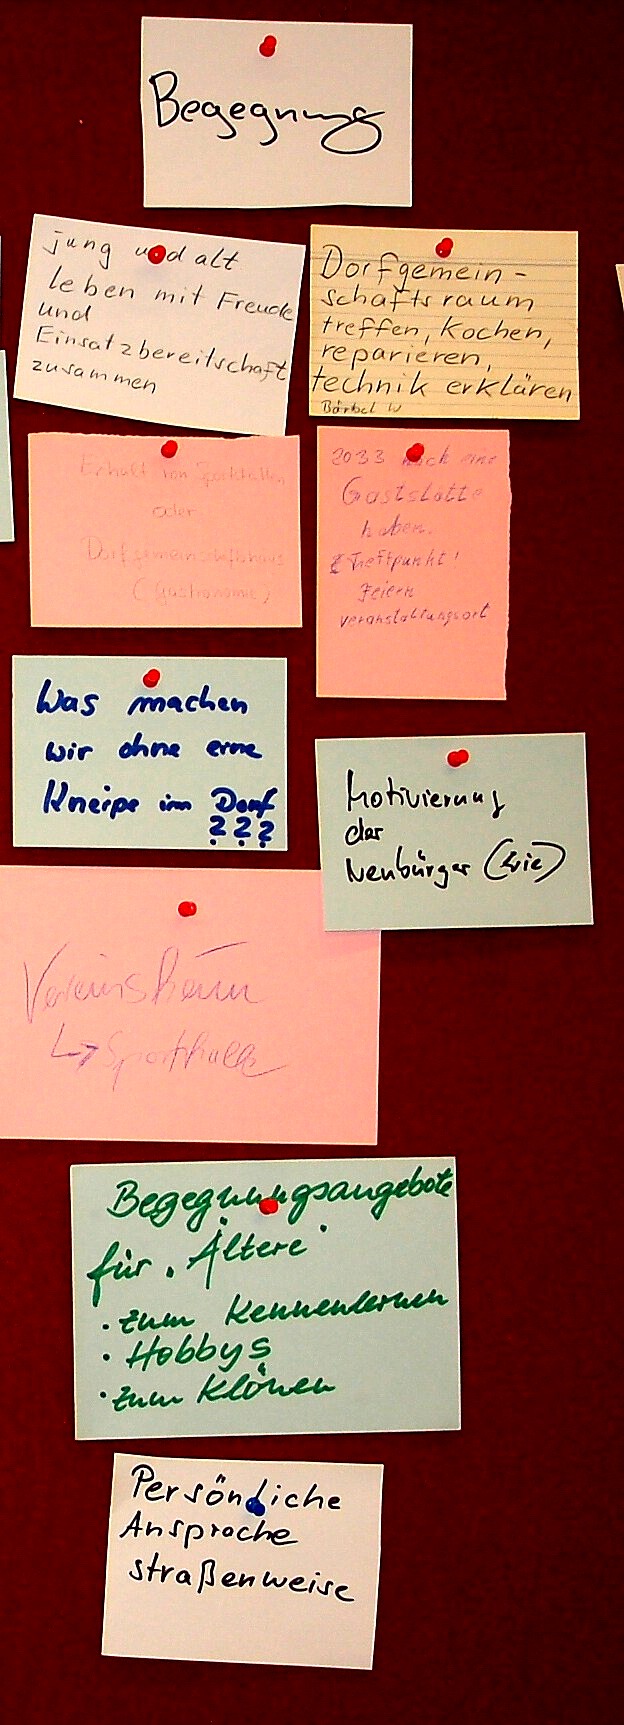 Begegnung
jung und alt
leben mit Freude
und
Einsatzbereitschaft
zusammen
Dorfgemein-
schaftsraum
treffen, kochen,
reparieren,
technik erklären
Bärbel W
Erhalt von Sportstätten
oder
Dorfgemeinschaftshaus
(Gastronomie)
2033 noch eine
Gaststätte
haben.
Treffpunkt!
Feiern
Veranstaltungsort
Was machen
wir ohne eine
Kneipe im Dorf
???
Motivierung
der
Neubürger (wie)
Vereinsheim
↳ Sporthalle
Begegnungsangebote
für "Ältere"
• zum Kennenlernen
• Hobbys
• zum Klönen
Persönliche
Ansprache
straßenweise